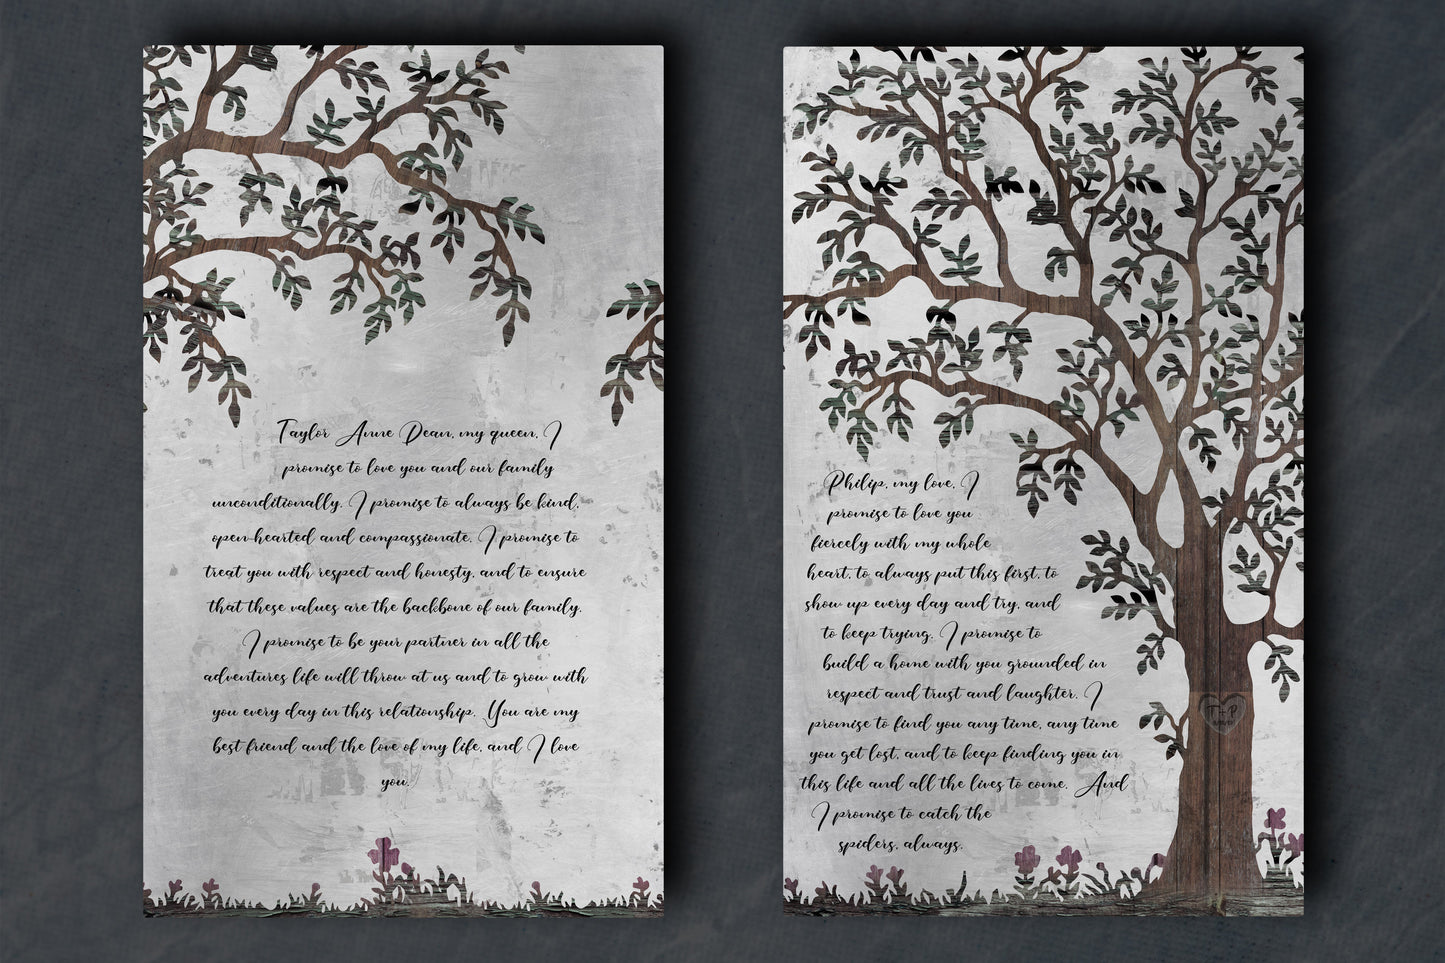 Taylor Anne Dean, my queen, I
promise to love you and our family
unconditionally. I promise to always be kind,
open-hearted and compassionate. I promise to
treat you with respect and honesty, and to ensure
that these values are the backbone of our family.
I promise to be your partner in all the
adventures life will throw at us and to grow with
you every day in this relationship. You are my
best friend and the love of my life, and I love
you.
Philip, my love, I
promise to love you
fiercely with my whole
heart, to always put this first, to
show up every day and try, and
to keep trying. I promise to
build a home with you grounded in
respect and trust and laughter. I
promise to find you any time, any time
you get lost, and to keep finding you in
this life and all the lives to come. And
I promise to catch the
spiders, always.
T-P